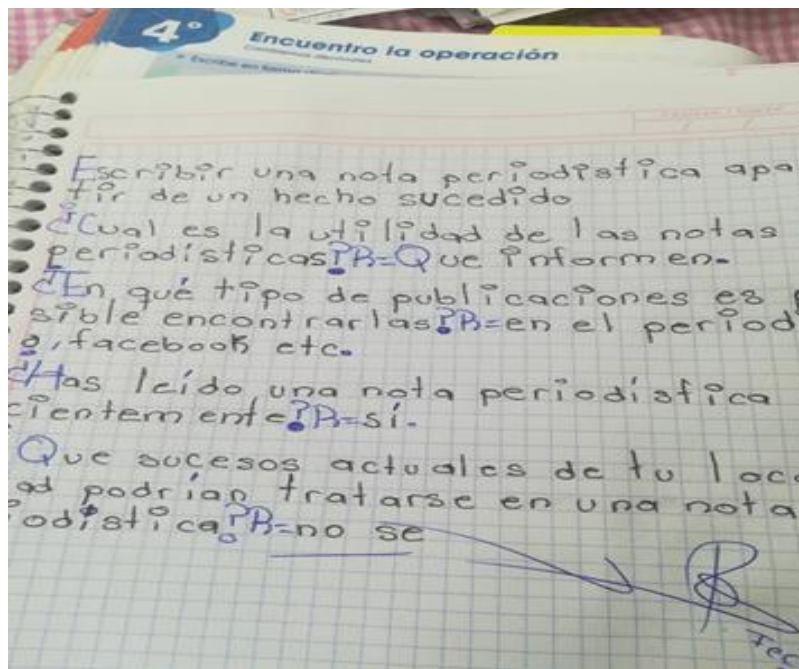 4°
Encuentro la operación
Escribir una nota periodística apa
tir de un hecho sucedido
¿Cual es la utilidad de las notas
periodísticas? R=Que informen.
¿En qué tipo de publicaciones es p
sible encontrarlas? R=en el period
o, facebook etc.
¿Has leído una nota periodística
cientemente? R=sí.
Que sucesos actuales de tu loc
ad podrían tratarse en una nota
iodística? R=no se